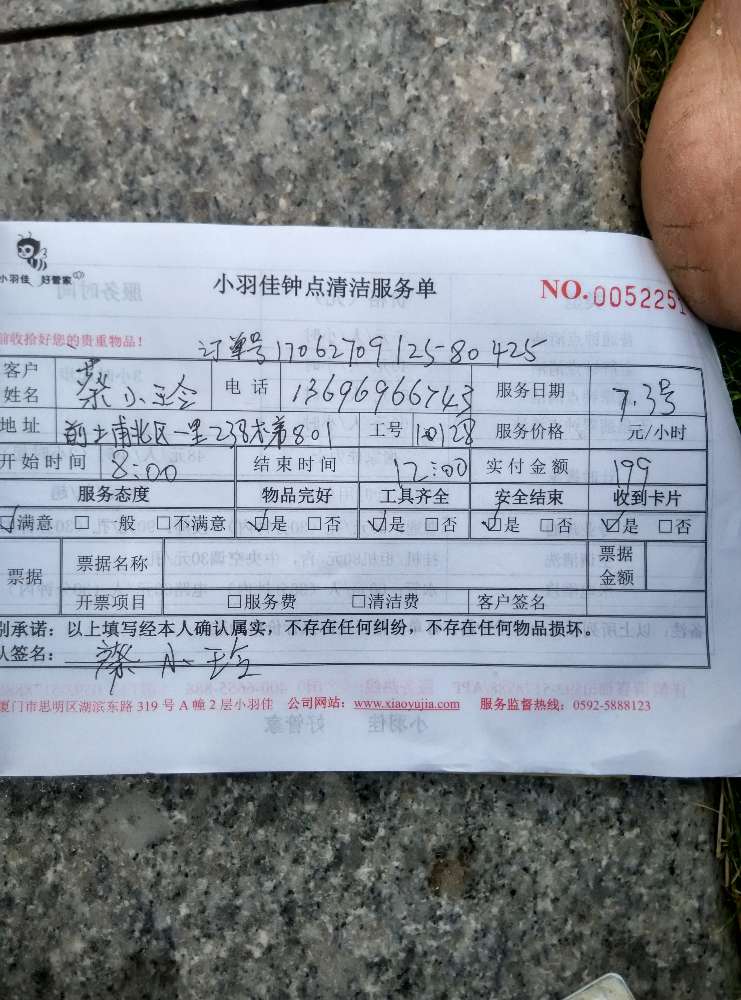 小羽佳 好管家
小羽佳钟点清洁服务单
NO.0052251
前收拾好您的贵重物品!
订单号1706270912580425
客户姓名 蔡小玲 电话 13696966743 服务日期 7.3号
地址 前土甫北区一里238术第801 工号 10128 服务价格 元/小时
开始时间 8:00 结束时间 12:00 实付金额 199
服务态度 物品完好 工具齐全 安全结束 收到卡片
☑满意 □一般 □不满意 ☑是 □否 ☑是 □否 ☑是 □否 ☑是 □否
票据 票据名称 票据金额
开票项目 □服务费 □清洁费 客户签名
别承诺:以上填写经本人确认属实,不存在任何纠纷,不存在任何物品损坏。
认签名: 蔡小玲
厦门市思明区湖滨东路 319 号 A 幢 2 层小羽佳 公司网站:www.xiaoyujia.com 服务监督热线:0592-5888123